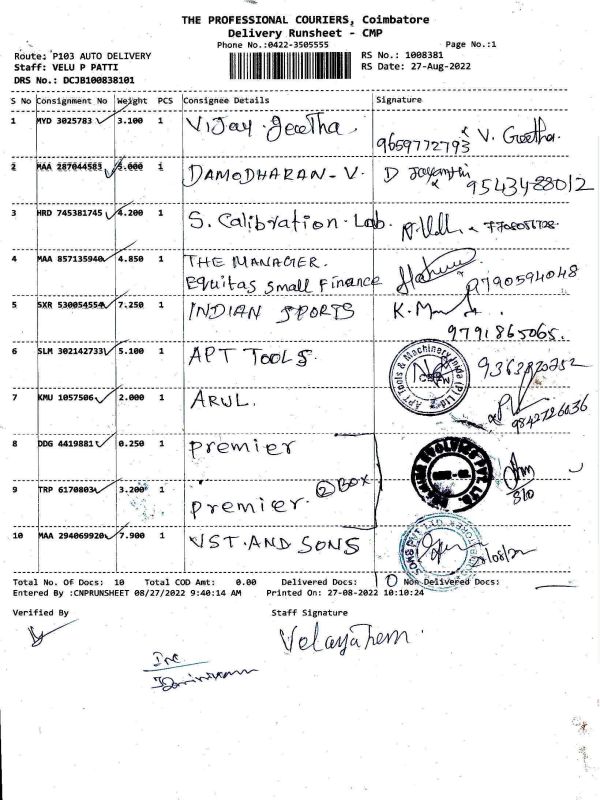 THE PROFESSIONAL COURIERS, Coimbatore
Delivery Runsheet - CMP
Phone No.:0422-3505555 Page No.:1
Route: P103 AUTO DELIVERY RS No.: 1008381
Staff: VELU P PATTI RS Date: 27-Aug-2022
DRS No.: DCJB100838101
S No Consignment No Weight PCS Consignee Details Signature
1 MYD 3025783 3.100 1 Vijay Geetha 9659772793 V. Geetha.
2 MAA 287044583 5.000 1 DAMODHARAN-V. D Jayanthi 9543488012
3 HRD 745381745 4.200 1 S. Calibration Lab.
4 MAA 857135940 4.850 1 THE MANAGER.
Equitas Small Finance 9790594048
5 SXR 530054554 7.250 1 INDIAN SPORTS K.
9791865065.
6 SLM 302142733 5.100 1 APT TOOLS. APT Tools & Machinery India (P) Ltd.
7 KMU 1057506 2.000 1 ARUL. 9842726036
8 DDG 4419881 0.250 1 premier
9 TRP 6170803 3.200 1 premier. 2 BOX
10 MAA 294069920 7.900 1 VST. AND SONS
Total No. Of Docs: 10 Total COD Amt: 0.00 Delivered Docs: 10 Non Delivered Docs:
Entered By :CNPRUNSHEET 08/27/2022 9:40:14 AM Printed On: 27-08-2022 10:10:24
Verified By Staff Signature